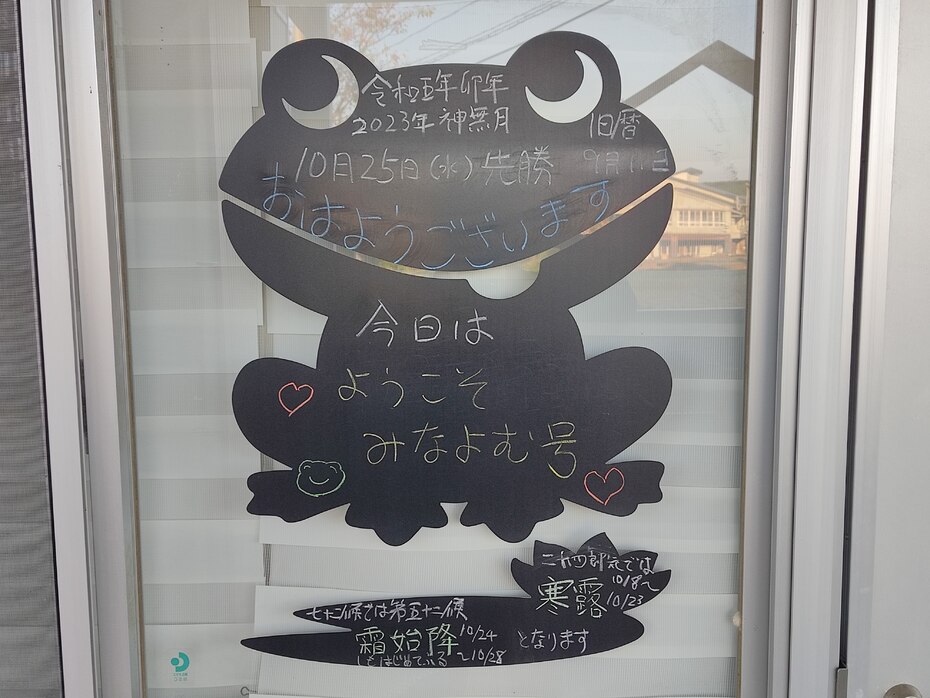 令和五年卯年
2023年神無月
旧暦
10月25日(水)先勝
9月11日
おはようございます
今日は
ようこそ
みなよむ号
二十四節気では
寒露
10/8〜
10/23
七十二候では第五十二候
霜始降
10/24
〜10/28
しもはじめてふる
となります